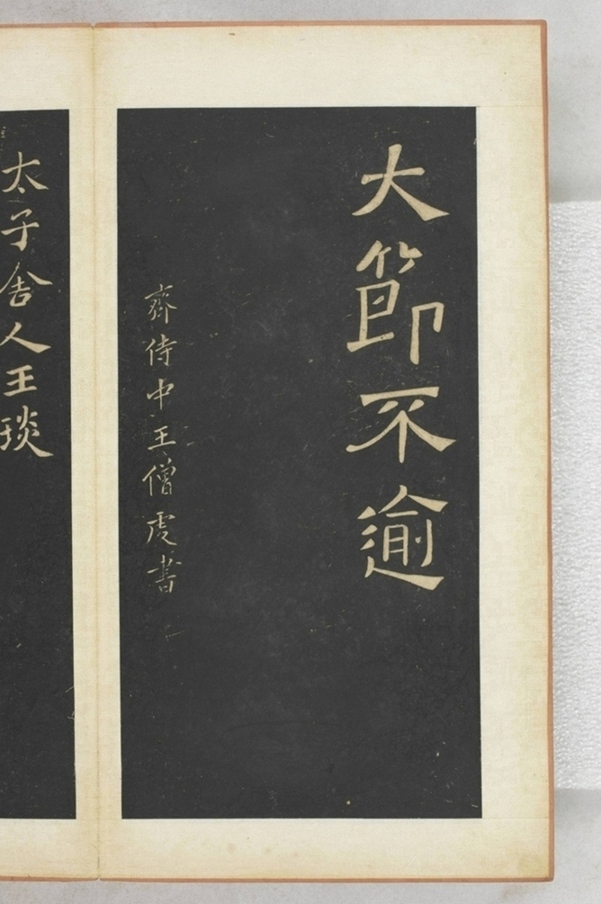 大節不逾
齊侍中王僧虔書
太子舍人王琰